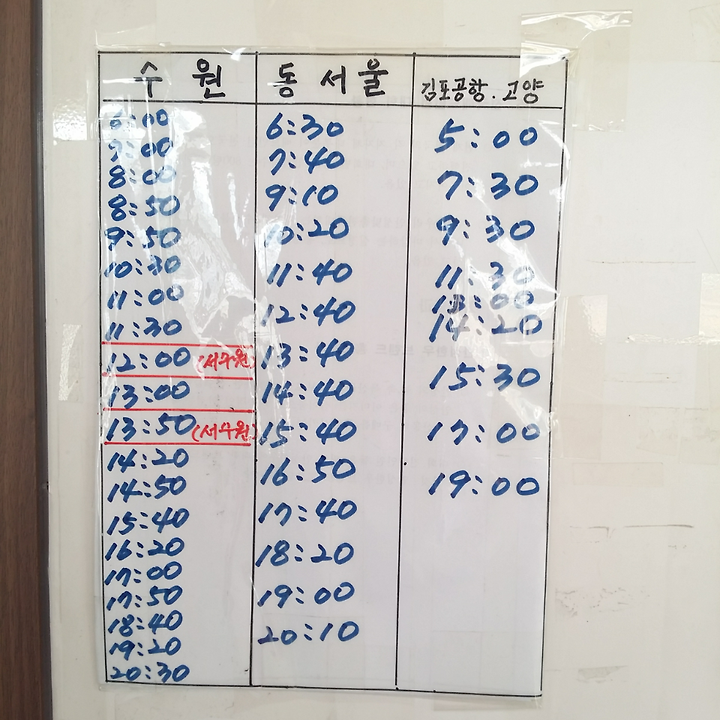 수원
6:00
7:00
8:00
8:50
9:50
10:30
11:00
11:30
12:00 (서수원)
13:00
13:50 (서수원)
14:20
14:50
15:40
16:20
17:00
17:50
18:40
19:20
20:30
동서울
6:30
7:40
9:10
10:20
11:40
12:40
13:40
14:40
15:40
16:50
17:40
18:20
19:00
20:10
김포공항.고양
5:00
7:30
9:30
11:30
13:00
14:20
15:30
17:00
19:00